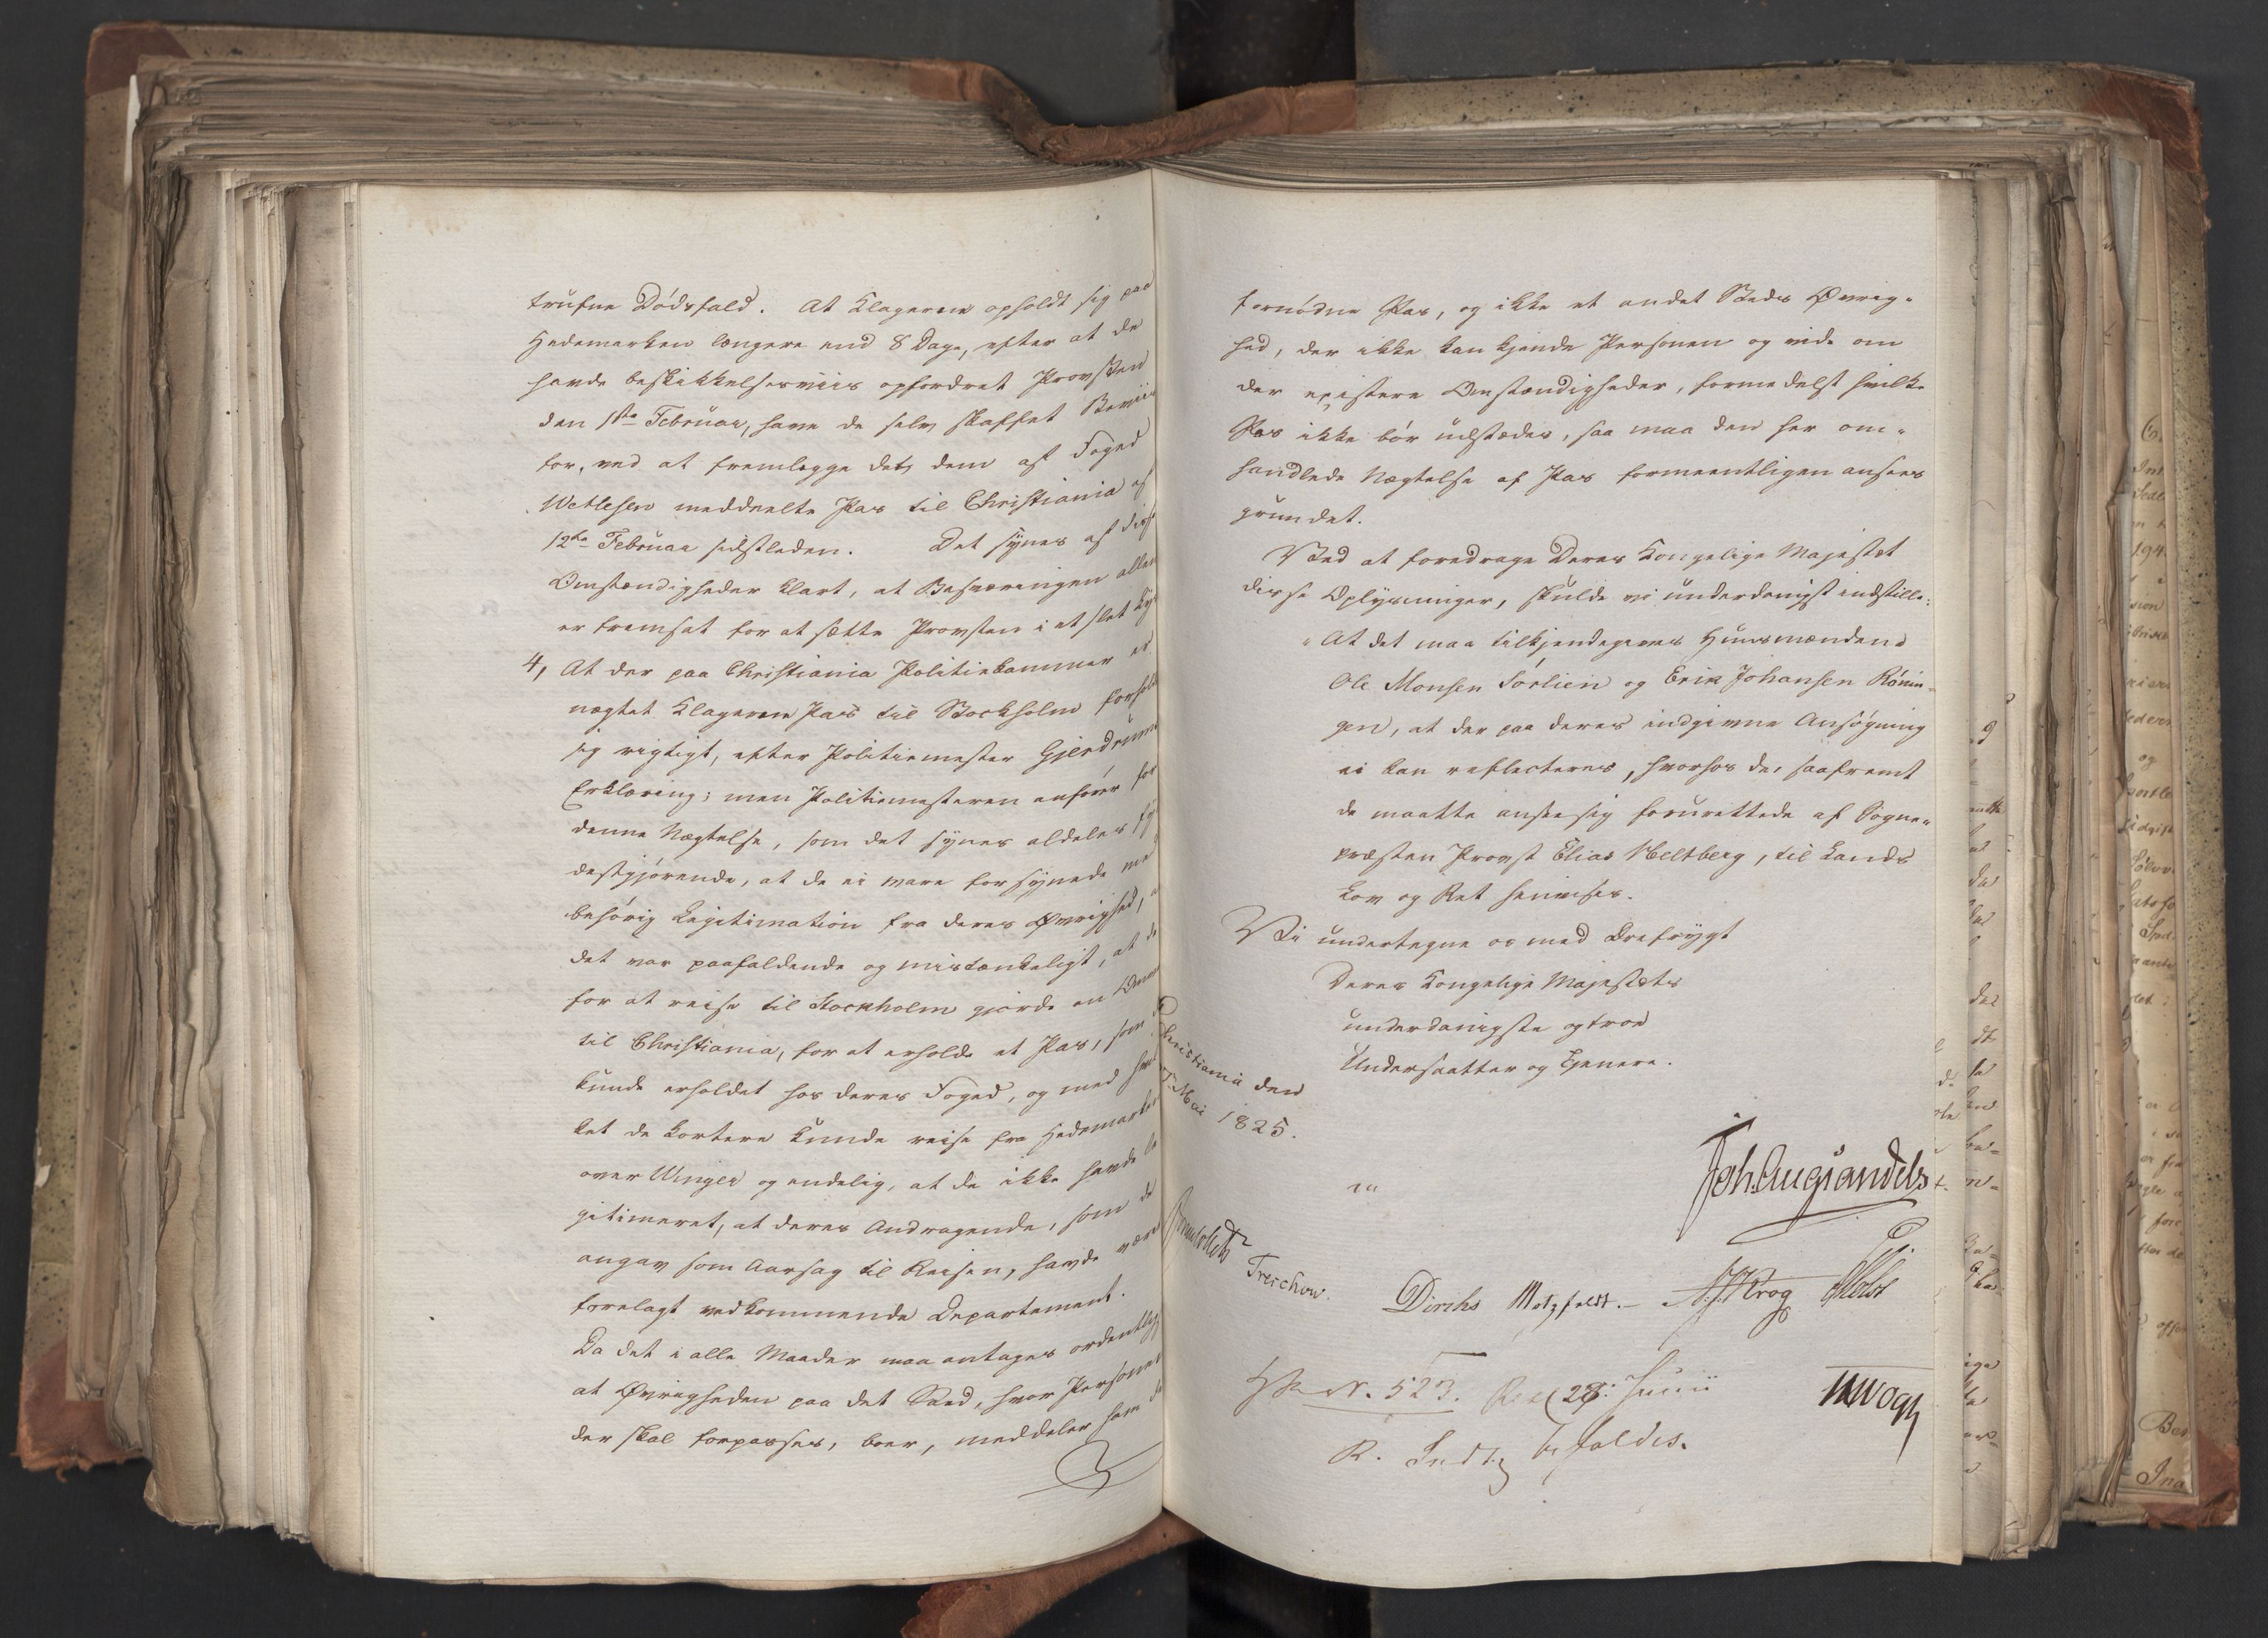 trufne Dödsfald. At Klagerene opholdt sig paa
Hedemarken længere end 8 Dage, efter at de
havde beskikkelsesviis opfordret Provsten
den 1ste Februar, have de selv skaffet Beviis
for, ved at fremlægge det dem af Foged
Wetlesen meddeelte Pas til Christiania af
12te Februar sidstleden. Det synes af disse
Omstændigheder klart, at Besværingen allene
er fremsat for at sætte Provsten i et slet Lys
4, At der paa Christiania Politiekammer er
nægtet Klagerene Pas til Stockholm forholder
sig rigtigt, efter Politiemester Gjerdrums
Erklæring; men Politiemesteren anfører for
denne Nægtelse, som det synes aldeles fyl
destgjørende, at de ei vare forsynede med
behörig Legitimation fra deres Øvrighed,
det var paafaldende og mistænkeligt, at de
for at reise til Stockholm gjorde en Omvei
til Christiania, for at erholde et Pas, som de
kunde erholdet hos deres Foged, og med hvil
ket de kortere kunde reise fra Hedemarken
over Winger og endelig, at de ikke havde le
gitimeret, at deres Andragende, som de
angav som Aarsag til Reisen, havde været
forelagt vedkommende Departement.
Da det i alle Maader maa antages ordentligt
at Øvrigheden paa det Sted, hvor Personen
der skal forpasses, boer, meddeler ham det
fornödne Pas, og ikke et andet Steds Øvrig-
hed, der ikke kan kjende Personen og vide om
der existere Omstændigheder, formedelst hvilke
Pas ikke bör udstædes, saa maa den her om-
handlede Nægtelse af Pas formeentligen ansees
grundet.
Ved at foredrage Deres Kongelige Majestæt
disse Oplysninger, skulde vi underdanigst indstille:
"At det maa tilkjendegives Huusmændene
Ole Monsen Sörlien og Erik Johansen Rönin-
gen, at der paa deres indgivne Ansögning
ei kan reflecteres, hvorhos de, saafremt
de maatte ansee sig forurettede af Sogne-
præsten Provst Elias Heltberg, til Lands
Lov og Ret henvises.
Vi undertegne os med Ærefrygt
Deres Kongelige Majestæts
underdanigste og troe
Undersaatter og Tjenere.
Christiania den
Mai 1825.
Joh. Aug. Sandels
Treschow.
Diriks Motzfeldt. Krog Holst
No. 523. 28 Junii
R. Indst. bifaldes.